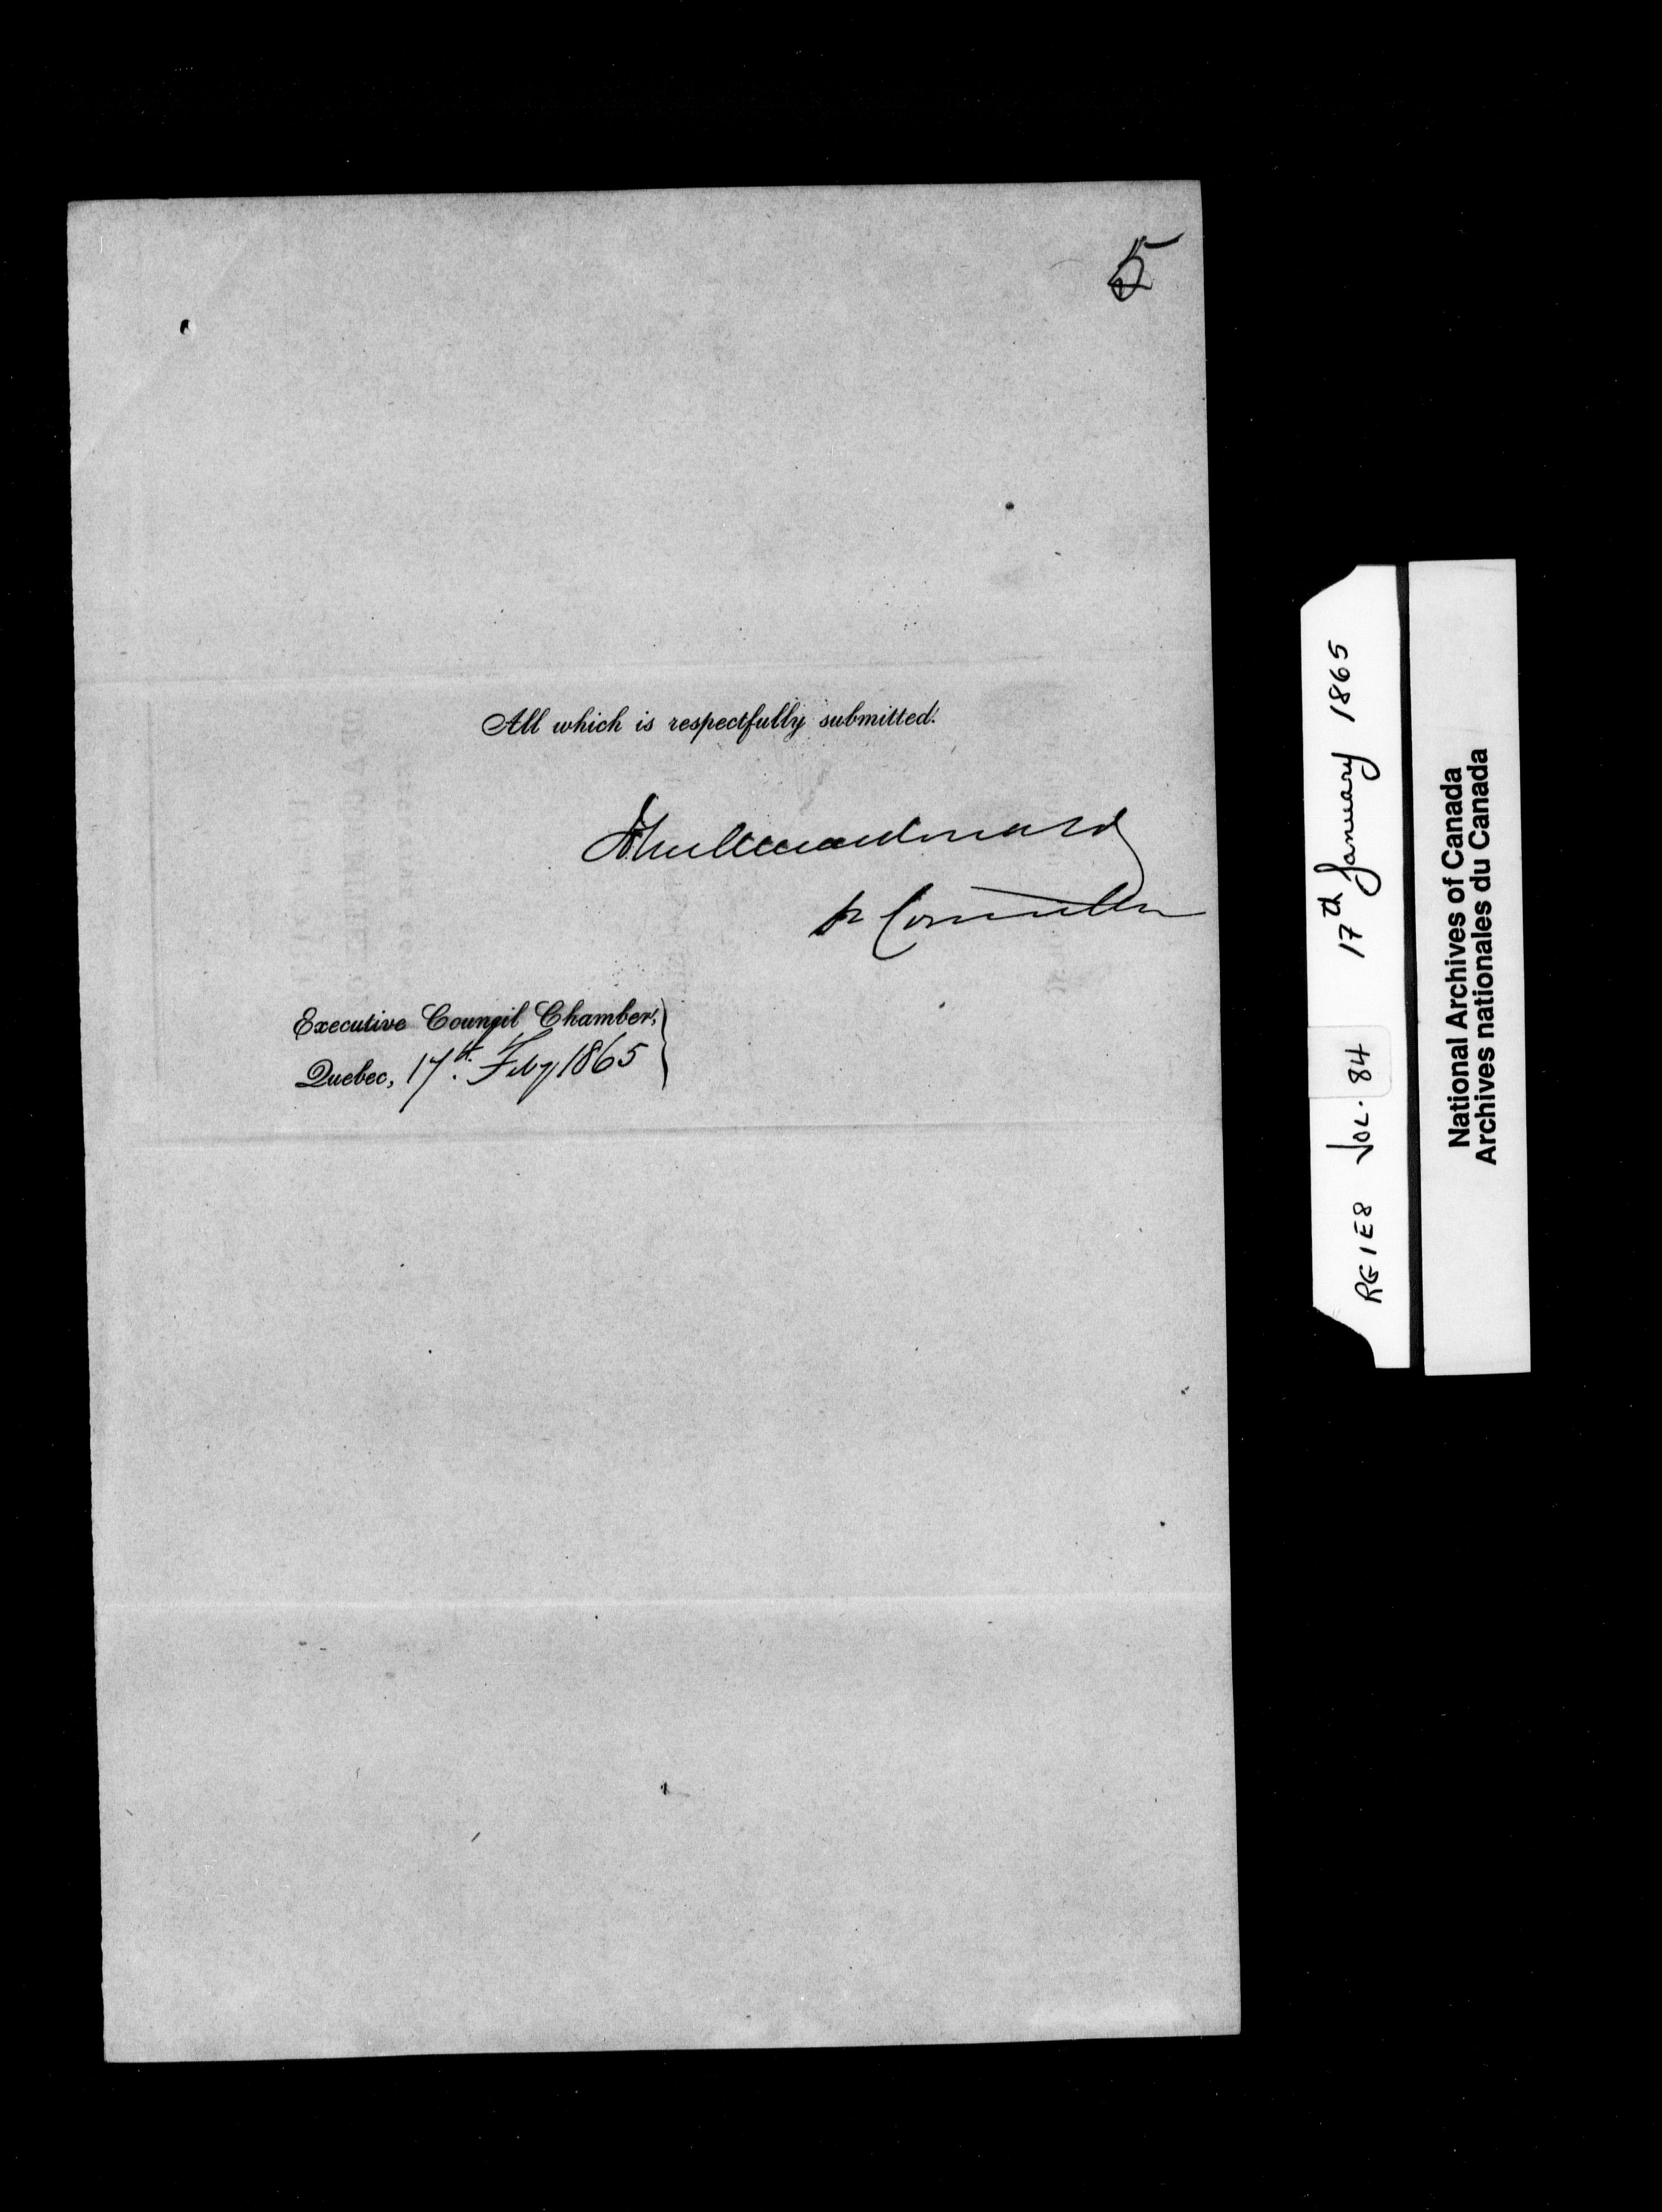 5
All which is respectfully submitted.
John A Macdonald
Executive Council Chamber,
Quebec, 17th. Feby 1865
RG1E8 VOL. 84 17th January 1865
National Archives of Canada
Archives nationales du Canada